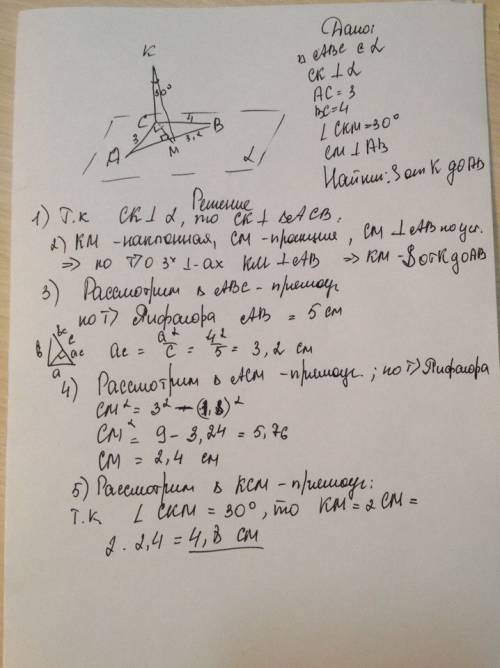 Дано:
△ ABC ∈ α
CK ⊥ α
AC = 3
BC = 4
∠ CKM = 30°
CM ⊥ AB
Найти: S от K до AB
K
30°
C
4
B
3
3,2
A
M
α
Решение
1) Т.к CK ⊥ α, то CK ⊥ △ACB.
2) KM - наклонная, CM - проекция, CM ⊥ AB по усл.
⇒ по T) О 3х ⊥-ах KM ⊥ AB ⇒ KM - S от K до AB
3) Рассмотрим △ ABC - прямоуг
по T) Пифагора AB = 5 см
b
bc
c
ac
a
ac = a²/c = 4²/5 = 3,2 см
4) Рассмотрим △ ACM - прямоуг; по T) Пифагора
CM² = 3² - (1,8)²
CM² = 9 - 3,24 = 5,76
CM = 2,4 см
5) Рассмотрим △ KCM - прямоуг:
Т.к. ∠ CKM = 30°, то KM = 2 CM =
2 · 2,4 = 4,8 см